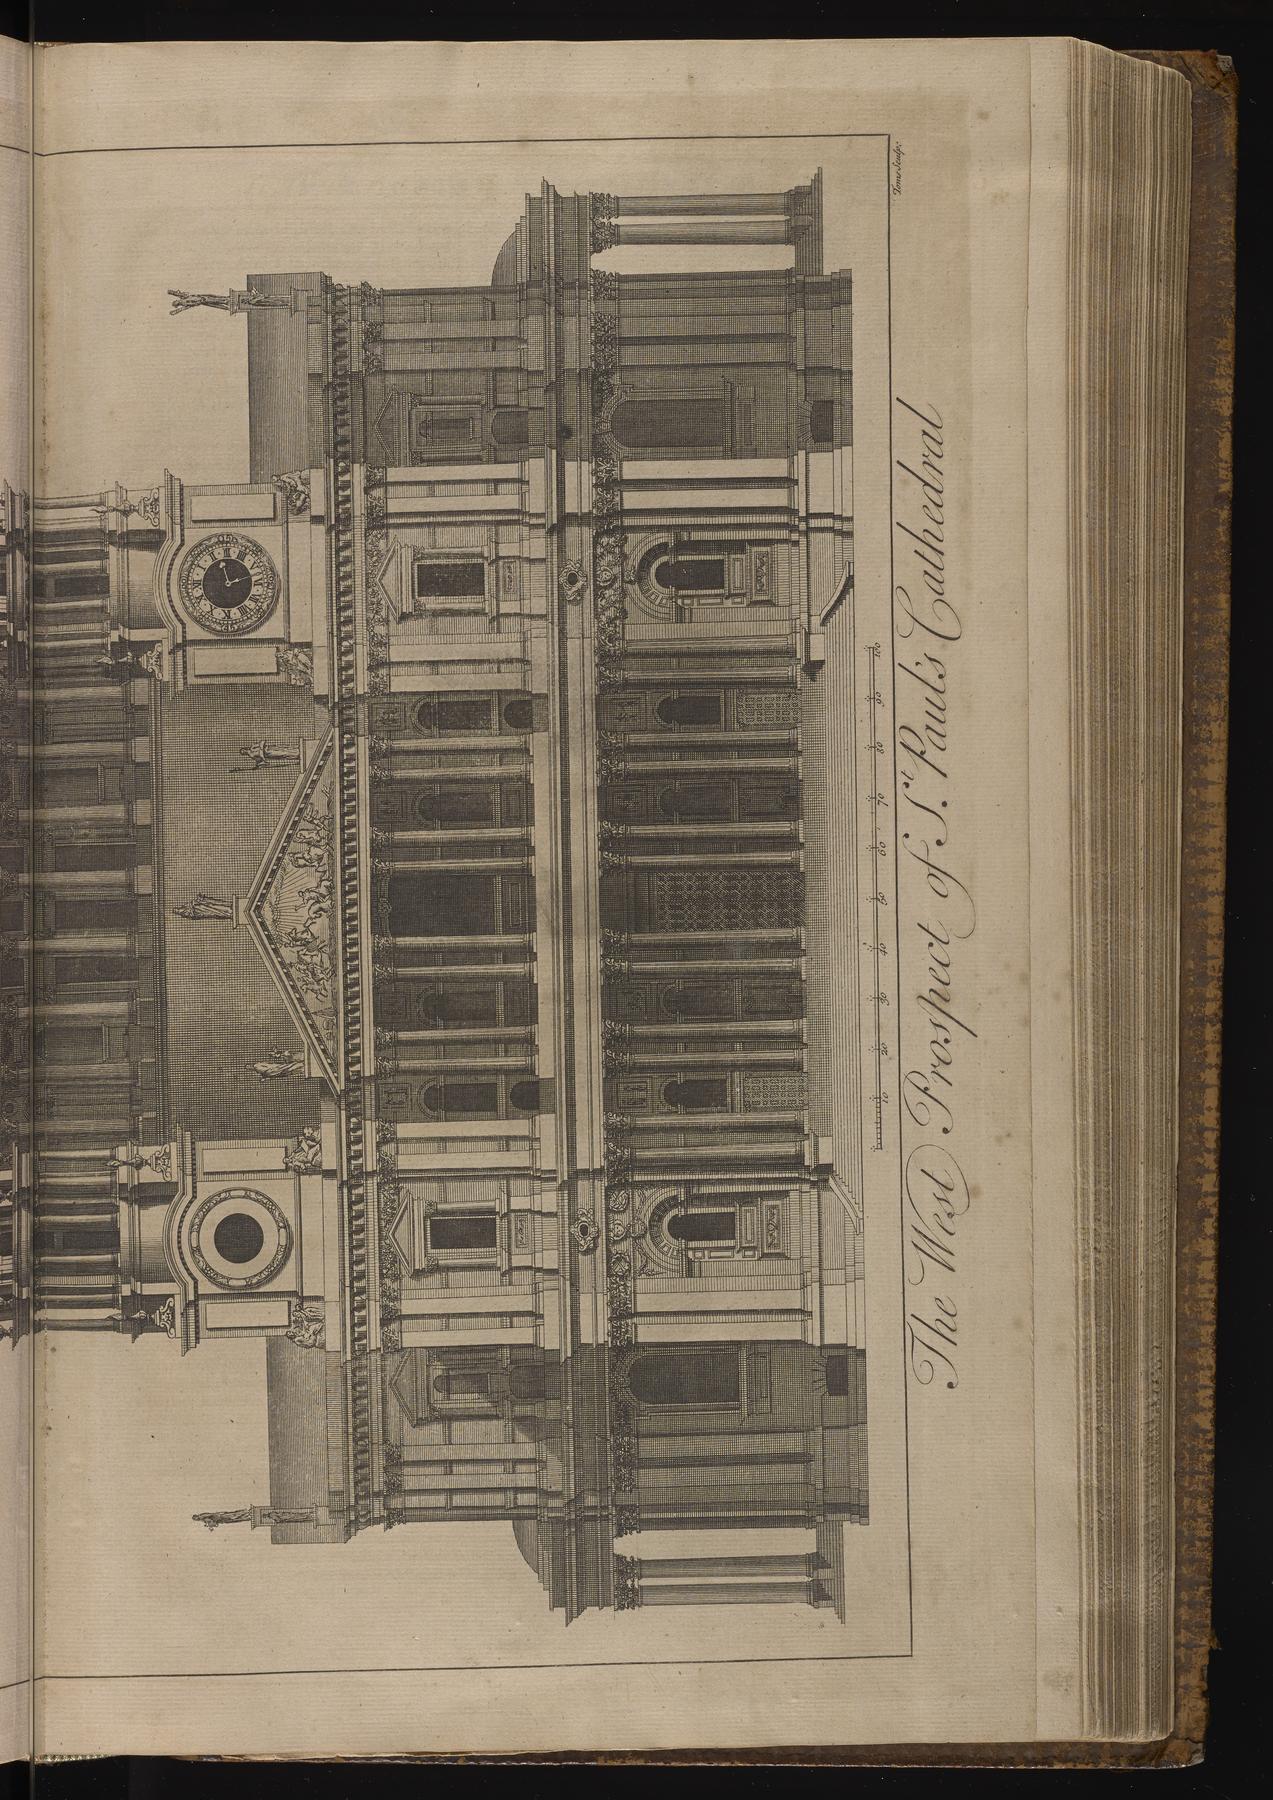 Toms Sculp:
10 20 30 40 50 60 70 80 90 100
The West Prospect of St. Paul's Cathedral